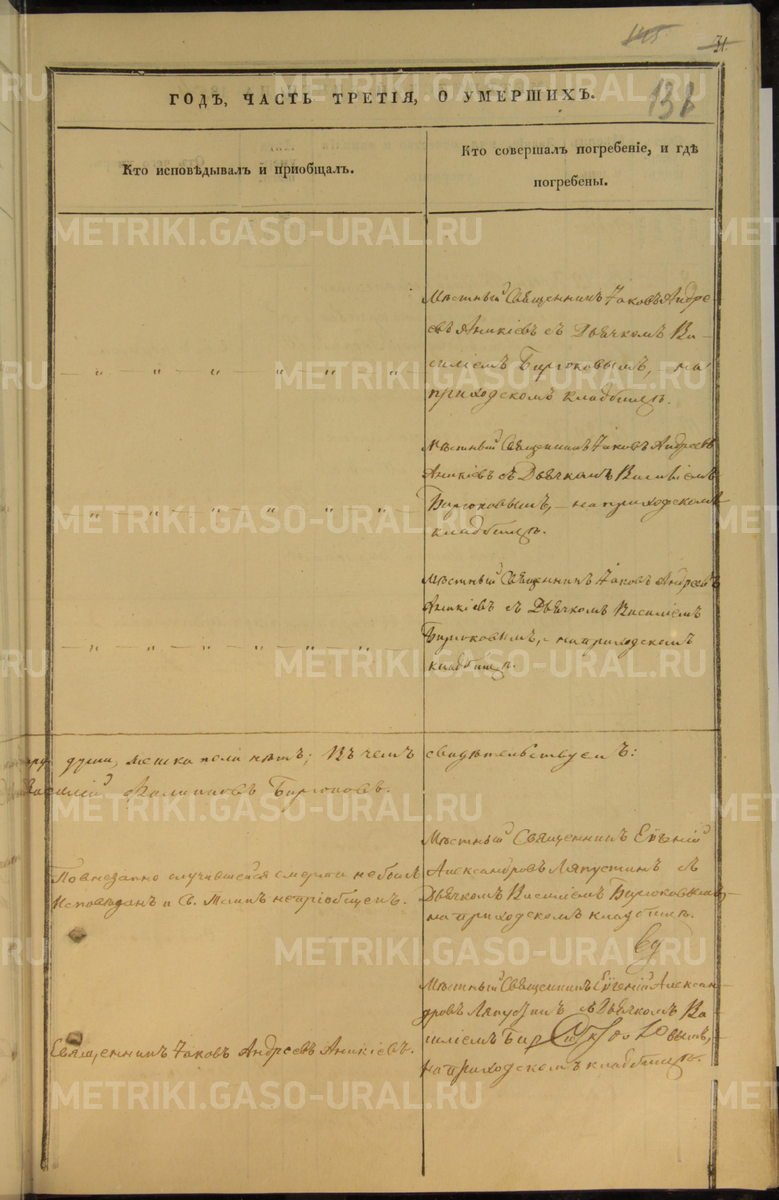 145
31.
131
ГОДЪ, ЧАСТЬ ТРЕТІЯ, О УМЕРШИХЪ.
Кто исповѣдывалъ и пріобщалъ.
Кто совершалъ погребеніе, и гдѣ
погребены.
Мѣстный Священникъ Іаковъ Андре-
евъ Аникіевъ съ Дьячкомъ Ва-
силіемъ Бирюковымъ, на
приходскомъ кладбищѣ.
Мѣстный Священникъ Іаковъ Андреевъ
Аникіевъ съ Дьячкомъ Василіемъ
Бирюковымъ, на приходскомъ
кладбищѣ.
Мѣстный Священникъ Іаковъ Андреевъ
Аникіевъ съ Дьячкомъ Василіемъ
Бирюковымъ, на приходскомъ
кладбищѣ.
души, женска пола нѣтъ; Въ чемъ свидѣтельствуемъ:
Василій Бирюковъ.
По внезапно случившейся смерти не былъ
Исповѣданъ и Св. Таинъ непріобщенъ.
Мѣстный Священникъ Евгеній
Александровъ Ляпустинъ съ
Дьячкомъ Василіемъ Бирюковымъ,
на приходскомъ кладбищѣ.
Священникъ Іаковъ Андреевъ Аникіевъ.
Мѣстный Священникъ Евгеній Алексан-
дровъ Ляпустинъ съ Дьячкомъ Ва-
силіемъ Бирюковымъ,
на приходскомъ кладбищѣ.
METRIKI.GASO-URAL.RU